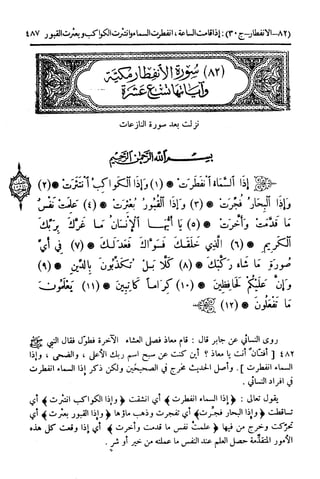 (٨٢-الانفطار-ج ٣٠): إذا قامت الساعة، انفطرت السماء وانتثرت الكواكب وبعثرت القبور ٤٨٧
(٨٢) سورة الانفطار مكية
وآياتها تسع عشرة
نزلت بعد سورة النازعات
بسم الله الرحمن الرحيم
إِذَا السَّمَاءُ انفَطَرَتْ (١) وَإِذَا الْكَوَاكِبُ انتَثَرَتْ (٢)
وَإِذَا الْبِحَارُ فُجِّرَتْ (٣) وَإِذَا الْقُبُورُ بُعْثِرَتْ (٤) عَلِمَتْ نَفْسٌ
مَا قَدَّمَتْ وَأَخَّرَتْ (٥) يَا أَيُّهَا الْإِنسَانُ مَا غَرَّكَ بِرَبِّكَ
الْكَرِيمِ (٦) الَّذِي خَلَقَكَ فَسَوَّاكَ فَعَدَلَكَ (٧) فِي أَيِّ
صُورَةٍ مَا شَاءَ رَكَّبَكَ (٨) كَلَّا بَلْ تُكَذِّبُونَ بِالدِّينِ (٩)
وَإِنَّ عَلَيْكُمْ لَحَافِظِينَ (١٠) كِرَامًا كَاتِبِينَ (١١) يَعْلَمُونَ
مَا تَفْعَلُونَ (١٢)
روى النسائي عن جابر قال: قام معاذ فصلى العشاء الآخرة فطول فقال النبي ﷺ
٤٨٢ [ أفتان أنت يا معاذ؟ أين كنت عن سبح اسم ربك الأعلى، والضحى، وإذا
السماء انفطرت ]. وأصل الحديث مخرج في الصحيحين ولكن ذكر إذا السماء انفطرت
في افراد النسائي.
يقول تعالى: ﴿ إذا السماء انفطرت ﴾ أي انشقت ﴿ وإذا الكواكب انتثرت ﴾ أي
تساقطت ﴿ وإذا البحار فجرت ﴾ أي تفجرت وذهب ماؤها ﴿ وإذا القبور بعثرت ﴾ أي
تحركت وخرج من فيها ﴿ علمت نفس ما قدمت وأخرت ﴾ أي إذا وقعت كل هذه
الأمور المتقدمة حصل العلم عند النفس ما عملته من خير أو شر.